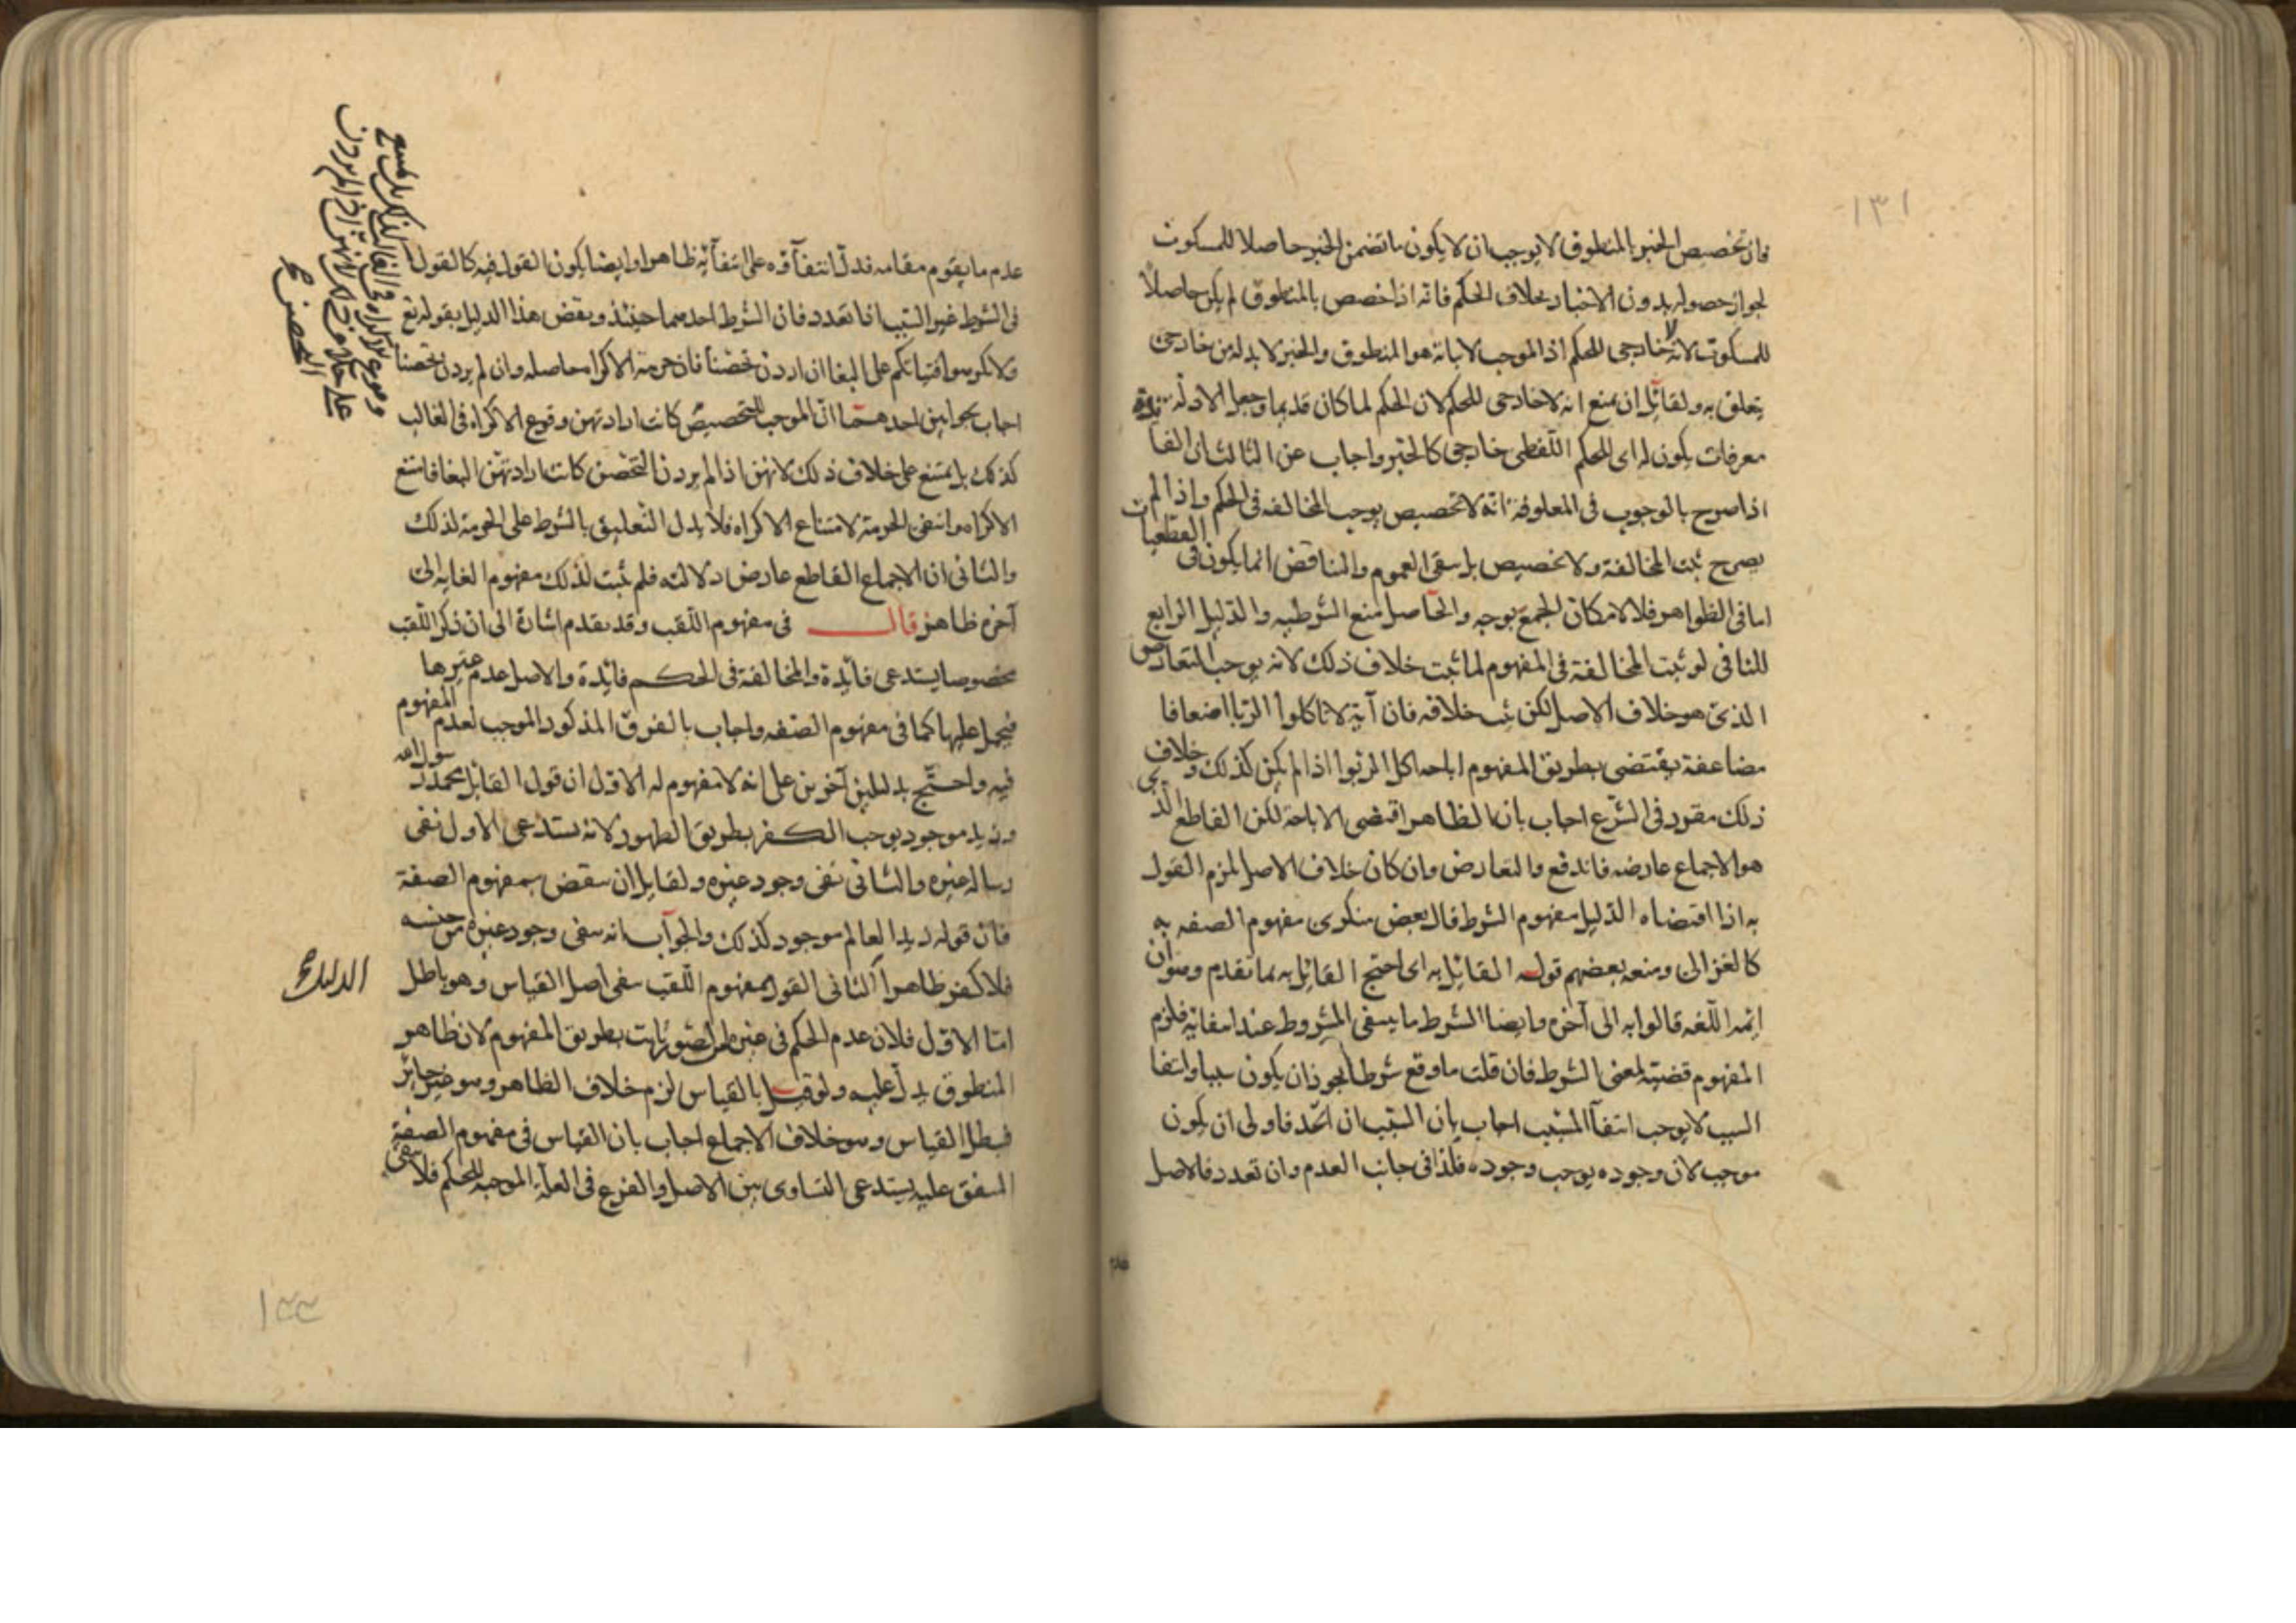 ١٣١
فان تخصيص الخبر بالمنطوق لا يوجب ان لا يكون ما تضمن الخبر حاصلا للمسكوت
لجواز حصوله بدون الاخبار بخلاف الحكم فانه اذا خصص بالمنطوق لم يكن حاصلا
للمسكوت لانه لا خارجى للحكم اذ الموجب لاباته هو المنطوق والخبر لا بد له من خارجى
يتعلق به ولقائل ان يمنع انه لا خارجى للحكم لان الحكم لما كان قديما وجعل الادلة
معرفات يكون له اى للحكم اللفظى خارجى كالخبر واجاب عن الثالث ان الفا
اذا صرح بالوجوب فى المعلوفة انه لا تخصيص يوجب المخالفه فى الحكم واذا لم
يصرح ثبت المخالفة ولا تخصيص بل سقى العموم والمناقض انما يكون فى القطعيات
اما فى الظواهر فلا لامكان الجمع بوجه والحاصل منع الشرطيه والدليل الرابع
للنافى لو ثبت المخالفة فى المفهوم لما ثبت خلاف ذلك لانه يوجب التعارض
الذى هو خلاف الاصل لكن ثبت خلافه فان آية لا تاكلوا الربا اضعافا
مضاعفة يقتضى بطريق المفهوم اباحه اكل الربوا اذا لم يكن كذلك وخلاف
ذلك مقرر فى الشرع اجاب بان الظاهر اقتضى الاباحة لكن القاطع الذى
هو الاجماع عارضه فاندفع والتعارض وان كان خلاف الاصل لزم القول
به اذا اقتضاه الدليل مفهوم الشرط قال بعض منكرى مفهوم الصفه به
كالغزالى ومنعه بعضهم قوله القائل به اى احتج القائل به بما تقدم وهو ان
ائمه اللغه قالوا به الى آخره وايضا الشرط ما ينتفى المشروط عند انتفائه فلزم
المفهوم قضية لمعنى الشرط فان قلت ما وقع شرطا يجوز ان يكون سببا وانتفا
السبب لا يوجب انتفآ المسبب اجاب بان السبب ان اتحد فاولى ان يكون
موجب لان وجوده يوجب وجوده فلذا فى جانب العدم وان تعدد فالاصل
عدم ما يقوم مقامه فدل انتفآؤه على انتفآئه ظاهرا وايضا يكون القول فيه كالقول
فى الشرط غير السبب اذا تعدد فان الشرط احدهما حينئذ ونقض هذا الدليل بقوله تع
ولا تكرهوا فتياتكم على البغا ان اردن تحصنا فان حرمة الاكراه حاصله وان لم يردن تحصنا
اجاب بجوابين احدهما ان الموجب للتخصيص كانت ارادتهن وقوع الاكراه فى الغالب
كذلك بل يمتنع على خلاف ذلك لانهن اذا لم يردن التحصن كانت ارادتهن البغا فامتنع
الاكراه وانتفى الحرمة لامتناع الاكراه فلا يدل التعليق بالشرط على الحرمة لذلك
والثانى ان الاجماع القاطع عارض دلالته فلم يثبت لذلك مفهوم الغايه الى
آخره ظاهر قال فى مفهوم اللقب وقد تقدم اشارة الى ان ذكر اللقب
مخصوصا يستدعى فائدة والمخالفة فى الحكم فائدة والاصل عدم غيرها
فيحمل عليها كما فى مفهوم الصفه واجاب بالفرق المذكور الموجب لعدم المفهوم
فيه واحتج بدليلين آخرين على انه لا مفهوم له الاول ان قول القائل محمد رسول الله
وزيد موجود يوجب الكفر بطريق الظهور لانه يستدعى الاول نفى
رساله غيره والثانى نفى وجود غيره ولقايل ان ينقض بمفهوم الصفة
فان قوله زيد العالم موجود كذلك والجواب انه ينفى وجود غيره من جنسه
فلا كفر ظاهرا الثانى القول بمفهوم اللقب ينفى اصل القياس وهو باطل
اما الاول فلان عدم الحكم فى غير ثابت بطريق المفهوم لان ظاهر
المنطوق يدل عليه ولو قيل بالقياس لزم خلاف الظاهر وهو غير جائز
فبطل القياس وهو خلاف الاجماع اجاب بان القياس فى مفهوم الصفة
المتفق عليه يستدعى التساوى بين الاصل والفرع فى العلة الموجبه للحكم فلا ينفى
على خلاف ذلك لانهن اذا لم يردن
التحصن
١٣٢